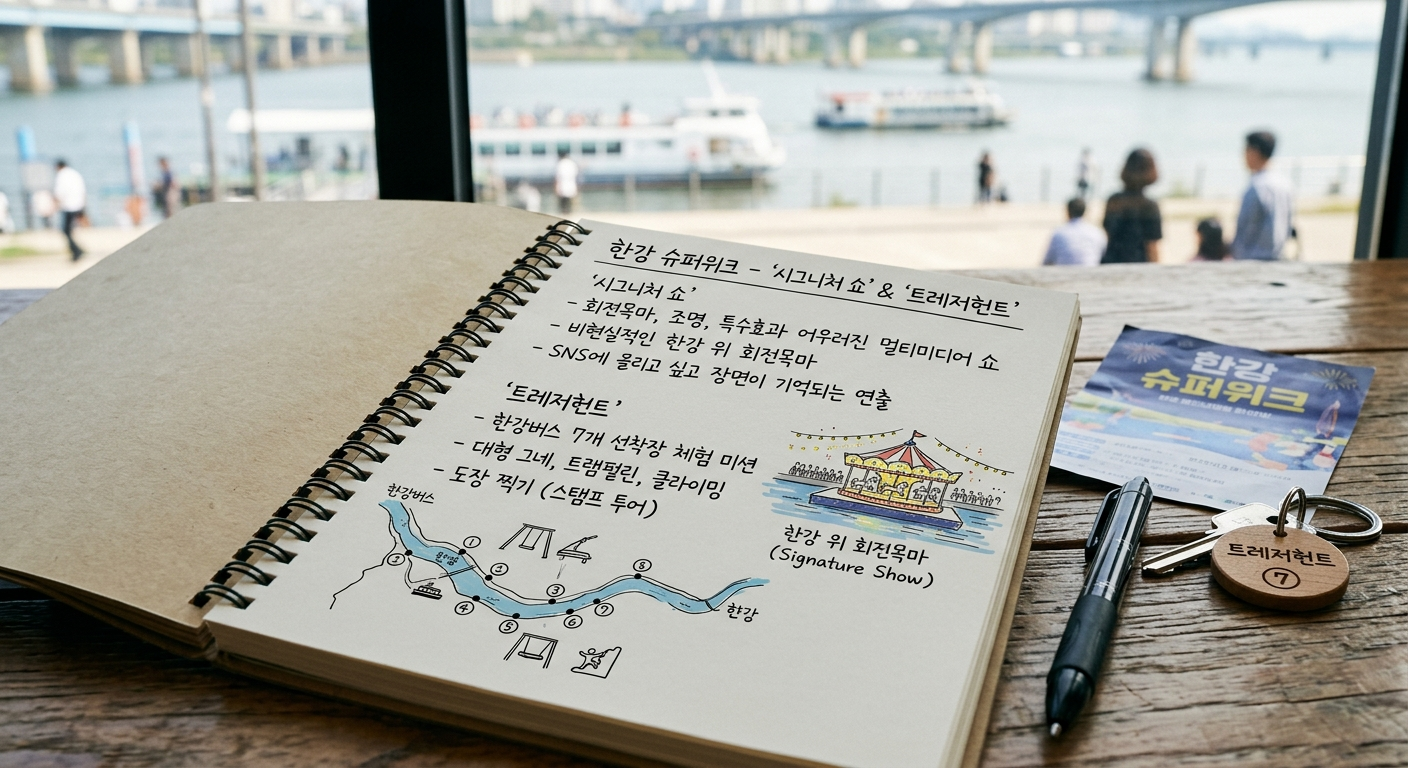 한강 슈퍼위크 - '시그니처 쇼' & '트레저헌트'
'시그니처 쇼'
- 회전목마, 조명, 특수효과 어우러진 멀티미디어 쇼
- 비현실적인 한강 위 회전목마
- SNS에 올리고 싶고 장면이 기억되는 연출
'트레저헌트'
- 한강버스 7개 선착장 체험 미션
- 대형 그네, 트램펄린, 클라이밍
- 도장 찍기 (스탬프 투어)
한강 위 회전목마
(Signature Show)
한강버스
①
②
③
④
⑤
⑥
⑦
⑧
한강
한강
슈퍼위크
트레저헌트
⑦